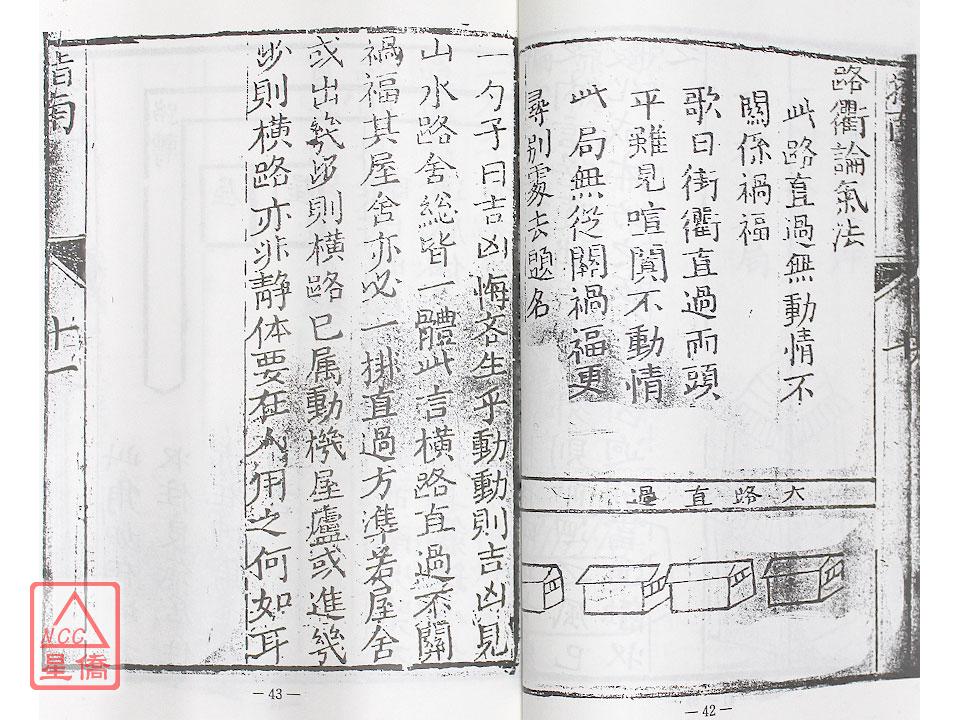 路衢論氣法
此路直過無動情不
關係禍福
歌曰街衢直過兩頭
平雖見喧闐不動情
此局無從關禍福更
尋別處去題名
大路直過
—42—
一勺子曰吉凶悔吝生乎動動則吉凶見
山水路舍総皆一體此言橫路直過不關
禍福其屋舍亦必一掛直過方準若屋舍
或出幾步則橫路已属動機屋廬或進幾
步則橫路亦非静体要在人用之何如耳
指南
十一
—43—
NCC
星僑